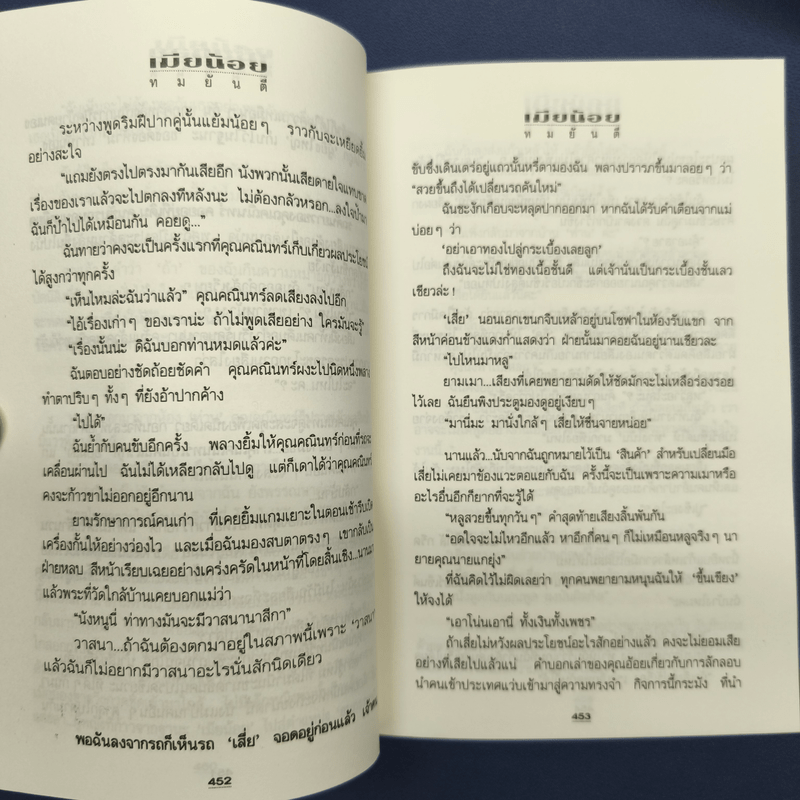 เมียน้อย
ทมยันตี
ระหว่างพูดริมฝีปากคู่นั้นแย้มน้อยๆ ราวกับจะเหยียด
อย่างสะใจ
“แถมยังตรงไปตรงมากันเสียอีก นังพวกนั้นเสียดายใจแทบขาด
เรื่องของเราแล้วจะไปตกลงทีหลังนะ ไม่ต้องกลัวหรอก...ลงใจป้า
ฉันก็ป้ำไปได้เหมือนกัน คอยดู...”
ฉันทายว่าคงจะเป็นครั้งแรกที่คุณคณินทร์เก็บเกี่ยวผลประโยชน์
ได้สูงกว่าทุกครั้ง
“เห็นไหมล่ะฉันว่าแล้ว” คุณคณินทร์ลดเสียงลงไปอีก
“ไอ้เรื่องเก่าๆ ของเราน่ะ ถ้าไม่พูดเสียอย่าง ใครมันจะรู้”
“เรื่องนั้นน่ะ ดิฉันบอกท่านหมดแล้วค่ะ”
ฉันตอบอย่างชัดถ้อยชัดคำ คุณคณินทร์ผงะไปนิดหนึ่งพลาง
ทำตาปริบๆ ทั้งๆ ที่ยังอ้าปากค้าง
“ไปได้”
ฉันย้ำกับคนขับอีกครั้ง พลางยิ้มให้คุณคณินทร์ก่อนที่รถจะ
เคลื่อนผ่านไป ฉันไม่ได้เหลียวกลับไปดู แต่ก็เดาได้ว่าคุณคณินทร์
คงจะก้าวขาไม่ออกอยู่อีกนาน
ยามรักษาการณ์คนเก่า ที่เคยยิ้มแกมเยาะในตอนเช้ารีบเปิด
เครื่องกั้นให้อย่างว่องไว และเมื่อฉันมองสบตาตรงๆ เขากลับเป็น
ฝ่ายหลบ สีหน้าเรียบเฉยอย่างเคร่งครัดในหน้าที่โดยสิ้นเชิง...นานมา
แล้วพระที่วัดใกล้บ้านเคยบอกแม่ว่า
“นังหนูนี่ ท่าทางมันจะมีวาสนานาสีกา”
วาสนา...ถ้าฉันต้องตกมาอยู่ในสภาพนี้เพราะ ‘วาสนา’
แล้วฉันก็ไม่อยากมีวาสนาอะไรนั่นสักนิดเดียว
พอฉันลงจากรถก็เห็นรถ ‘เสี่ย’ จอดอยู่ก่อนแล้ว
452
เมียน้อย
ทมยันตี
ขับซึ่งเดินเตร่อยู่แถวนั้นหรี่ตามองฉัน พลางปรารภขึ้นมาลอยๆ ว่า
“สวยขึ้นถึงได้เปลี่ยนรถคันใหม่”
ฉันชะงักเกือบจะหลุดปากออกมา หากฉันได้รับคำเตือนจากแม่
บ่อยๆ ว่า
‘อย่าเอาทองไปลู่กระเบื้องเลยลูก’
ถึงฉันจะไม่ใช่ทองเนื้อชั้นดี แต่เจ้านั่นเป็นกระเบื้องชั้นเลว
เชียวล่ะ!
‘เสี่ย’ นอนเอกเขนกจิบเหล้าอยู่บนโซฟาในห้องรับแขก จาก
สีหน้าค่อนข้างแดงก่ำแสดงว่า ฝ่ายนั้นมาคอยฉันอยู่นานเชียวละ
“ไปไหนมาหลู”
ยามเมา...เสียงที่เคยพยายามดัดให้ชัดมักจะไม่เหลือร่องรอย
ไว้เลย ฉันยืนพิงประตูมองดูอยู่เงียบๆ
“มานี่มะ มานั่งใกล้ๆ เสี่ยให้ชื่นจายหน่อย”
นานแล้ว...นับจากฉันถูกหมายไว้เป็น ‘สินค้า’ สำหรับเปลี่ยนมือ
เสี่ยไม่เคยมาข้องแวะตอแยกับฉัน ครั้งนี้จะเป็นเพราะความเมาหรือ
อะไรอื่นอีกก็ยากที่จะรู้ได้
“หลูสวยขึ้นทุกวันๆ” คำสุดท้ายเสียงลิ้นพันกัน
“อดใจจะไม่ไหวอีกแล้ว หาอีกกี่คนๆ ก็ไม่เหมือนหลูจริงๆ นา
ยายคุณนายแกยุ่ง”
ที่ฉันคิดไว้ไม่ผิดเลยว่า ทุกคนพยายามหนุนฉันให้ ‘ขึ้นเขียง’
ให้จงได้
“เอาโน่นเอานี่ ทั้งเงินทั้งเพชร”
ถ้าเสี่ยไม่หวังผลประโยชน์อะไรสักอย่างแล้ว คงจะไม่ยอมเสีย
อย่างที่เสียไปแล้วแน่ คำบอกเล่าของคุณอ้อยเกี่ยวกับการลักลอบ
นำคนเข้าประเทศแว่บเข้ามาสู่ความทรงจำ กิจการนี้กระมัง ที่นำ
453